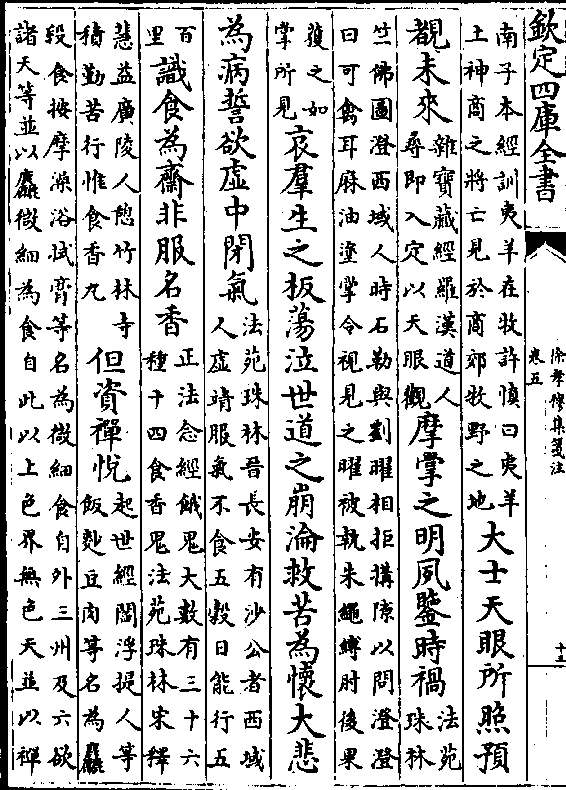 欽定四庫全書
徐孝穆集箋注
卷五
十五
南子本經訓夷羊在牧許慎曰夷羊
土神商之將亡見於商郊牧野之地
大士天眼所照預
覩未來
雜寶藏經羅漢道人
尋即入定以天眼觀
摩掌之明夙鑒時禍
法苑
珠林
竺佛圖澄西域人時石勒與劉曜相拒搆隙以問澄澄
曰可禽耳麻油塗掌令視見之曜被執朱繩縛肘後果
獲之如
掌所見
哀羣生之板蕩泣世道之崩淪救苦為懷大悲
為病誓欲虛中閉氣
法苑珠林晉長安有沙公者西域
人虛靖服氣不食五穀日能行五
百
里
識食為齋非服名香
正法念經餓鬼大數有三十六
種十四食香鬼法苑珠林宋釋
慧益廣陵人憩竹林寺
積勤苦行惟食香丸
但資禪悅
起世經閻浮提人等
飯麨豆肉等名為麤
段食按摩澡浴拭膏等名為微細食自外三州及六欲
諸天等並以麤微細為食自此以上色界無色天並以禪